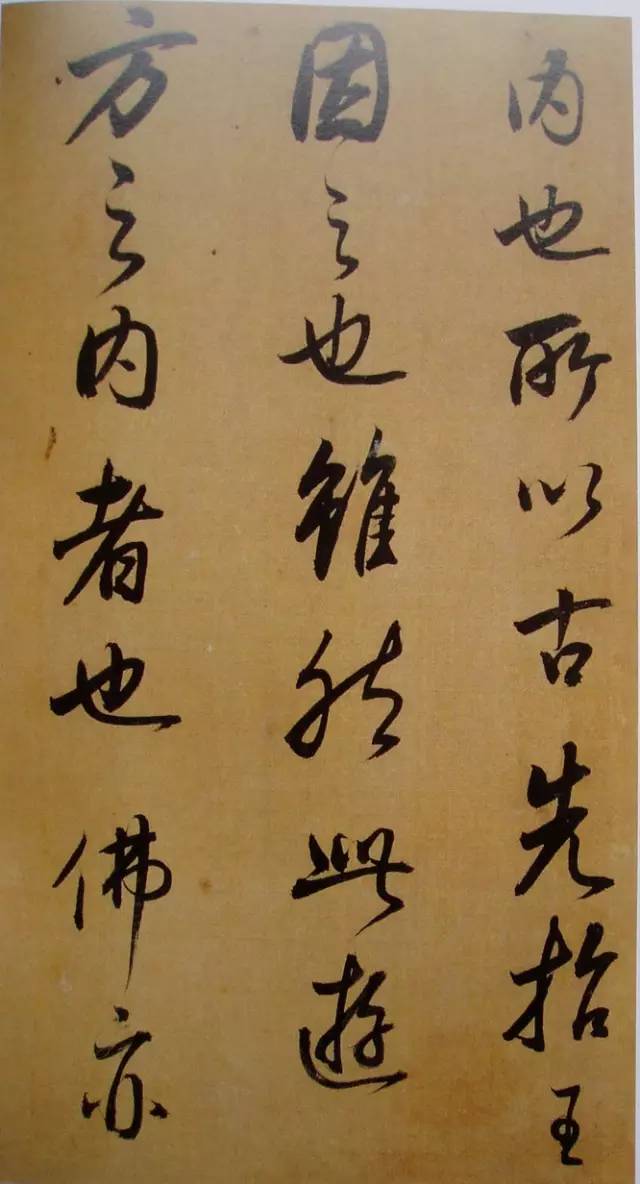 内也所以古先哲王
因之也雖然此遊
方之内者也佛亦